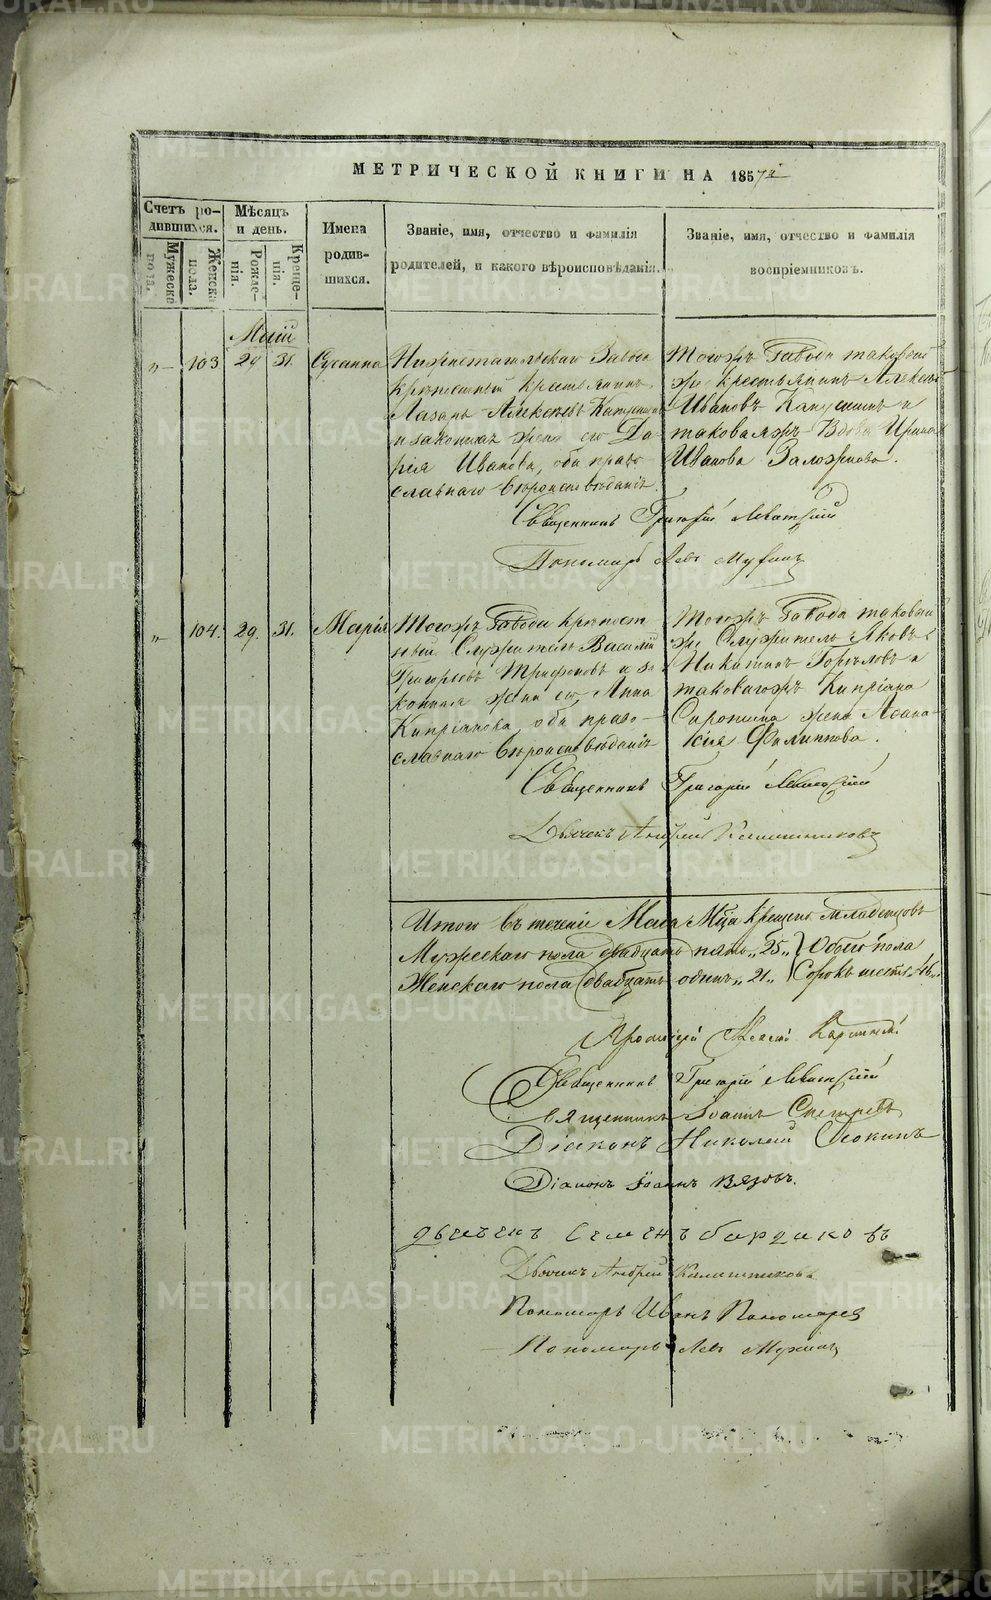 МЕТРИЧЕСКОЙ КНИГИ НА 1857й
Счетъ родившихся.
Мѣсяцъ и день.
Имена родившихся.
Званіе, имя, отчество и фамилія родителей, и какого вѣроисповѣданія.
Званіе, имя, отчество и фамилія воспріемниковъ.
Мужеска пола.
Женска пола.
Рожденія.
Крещенія.
Маій
"- 103 29 31. Сусанна
Нижнетагильскаго Завода
крѣпостный крестьянинъ
Лазарь Алексѣевъ
и законная жена его Да-
рія Иванова, оба право-
славнаго вѣроисповѣданія.
Тогожъ Завода таковый
же крестьянинъ Алексѣй
Ивановъ Капусинъ и
таковаяжъ Вдова Ирина
Иванова Заложнова.
Священникъ Григорій Левитскій
Пономарь Левъ Мухинъ
"- 104. 29. 31. Марія
Тогожъ Завода крѣпост
ный Служитель Василій
Григорьевъ Трифоновъ и за
конная жена его Анна
Кипріанова, оба право-
славнаго вѣроисповѣданія
Тогожъ Завода таковый
же Служитель Яковъ
Никитинъ Горѣловъ и
таковагожъ Кипріана
Сиротина жена Афана-
сія Филиппова.
Священникъ Григорій Левитскій
Дьячекъ Андрей Калашниковъ
Итого въ теченіи Маія М-ца крещено младенцовъ
Мужескаго пола двадцать пять „25„ Обоего пола
Женскаго пола двадцать одинъ „21„ Сорокъ шесть „46„
Протоіерей
Священникъ Григорій Левитскій
Священникъ Іоаннъ
Діаконъ Николай
Діаконъ Іоаннъ Вязовъ.
Дьячекъ Семенъ Бардаковъ
Дьячекъ Андрей Калашниковъ
Пономарь Иванъ Пономаревъ
Пономарь Левъ Мухинъ
METRIKI.GASO-URAL.RU